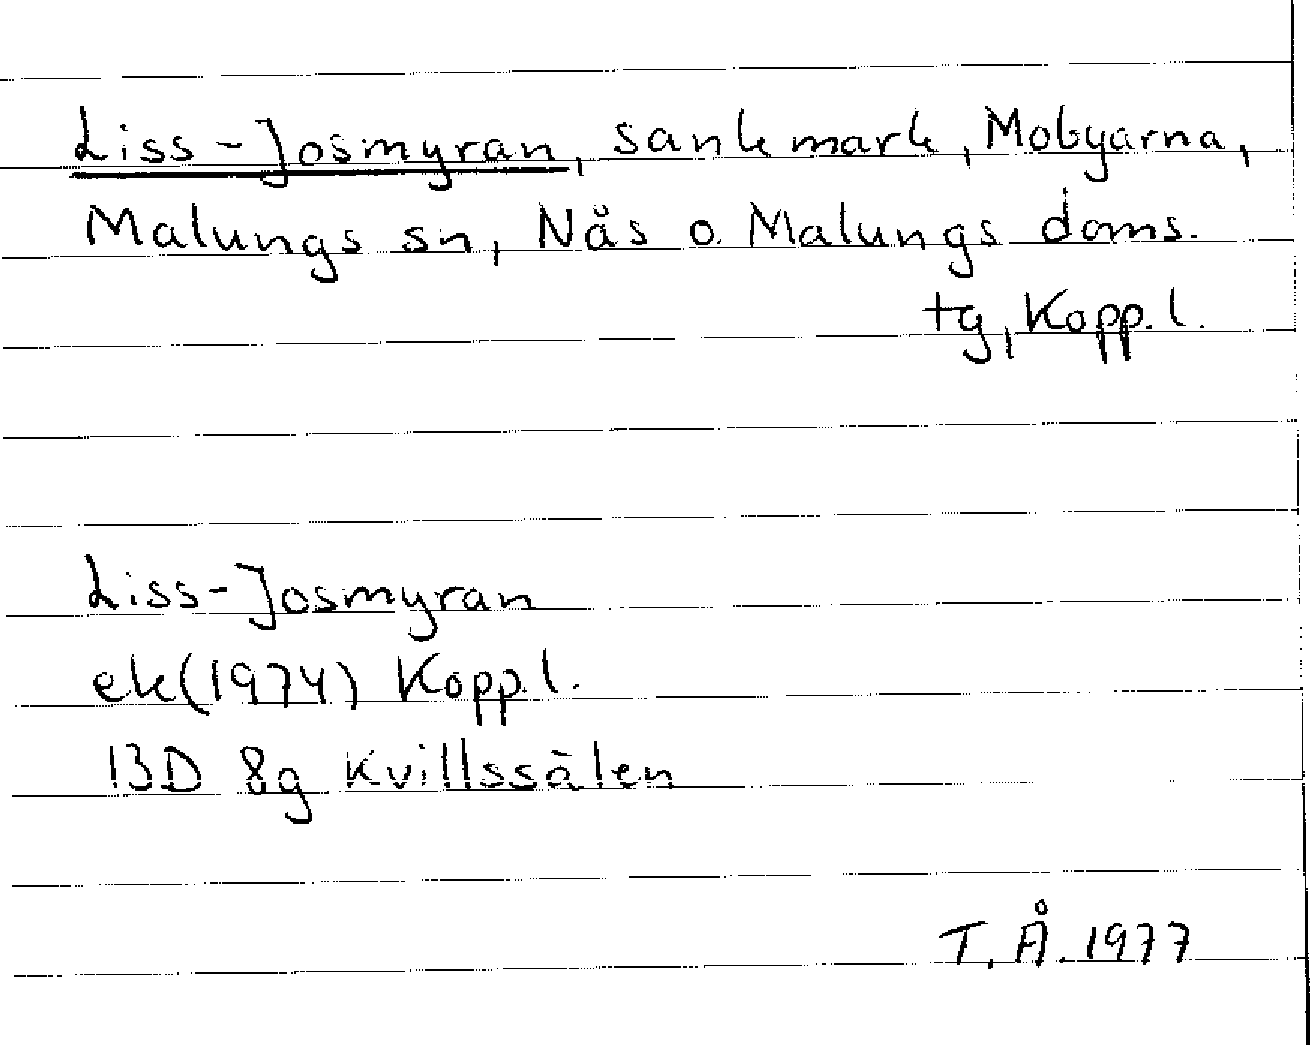 Liss-Josmyran, sankmark, Mobyarna,
Malungs sn, Nås o. Malungs doms.
tg, Kopp. l.
Liss-Josmyran
ek (1974) Kopp. l.
13D 8g Kvillssälen
T. Å. 1977